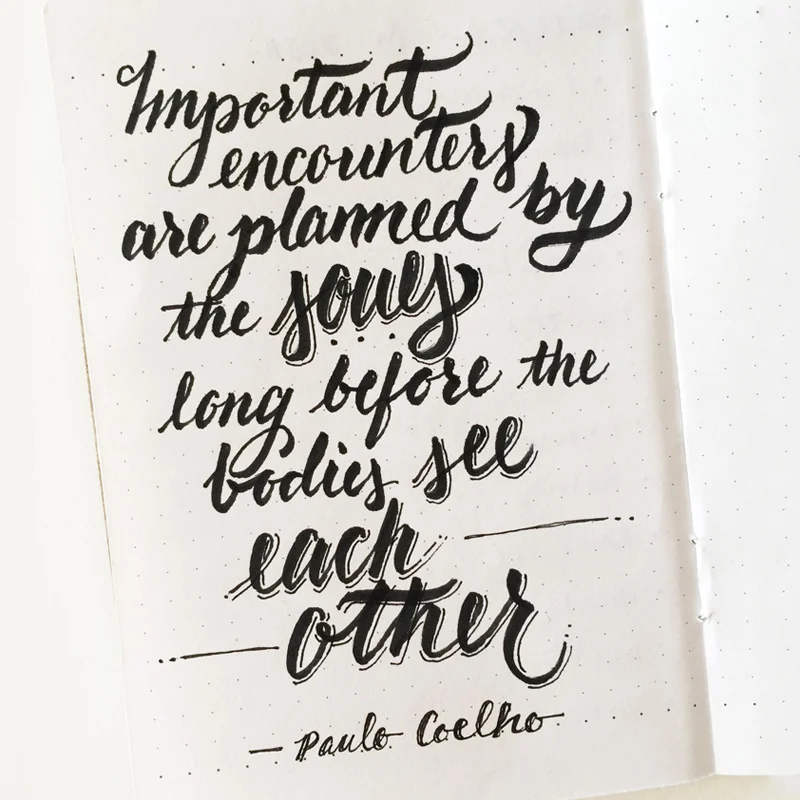 Important
encounters
are planned by
the souls
long before the
bodies see
each
other
— Paulo Coelho